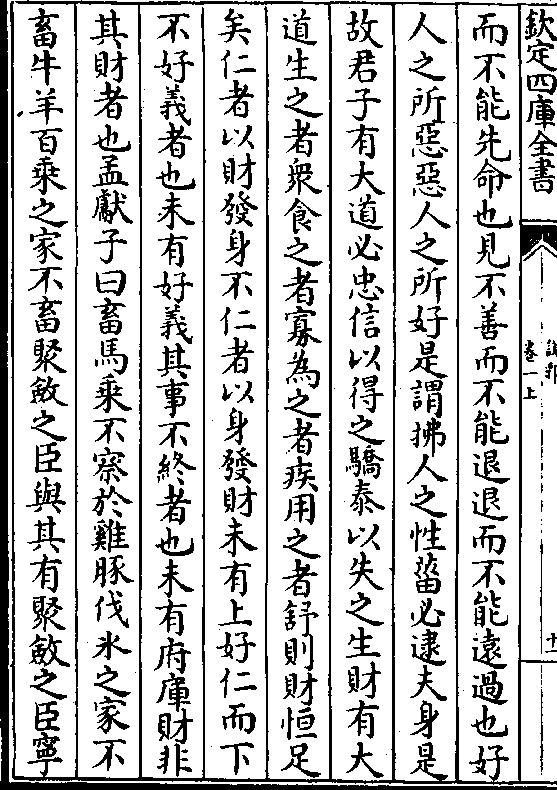 欽定四庫全書
卷一上
十一
而不能先命也見不善而不能退退而不能遠過也好
人之所惡惡人之所好是謂拂人之性菑必逮夫身是
故君子有大道必忠信以得之驕泰以失之生財有大
道生之者衆食之者寡為之者疾用之者舒則財恒足
矣仁者以財發身不仁者以身發財未有上好仁而下
不好義者也未有好義其事不終者也未有府庫財非
其財者也孟獻子曰畜馬乘不察於雞豚伐氷之家不
畜牛羊百乘之家不畜聚斂之臣與其有聚斂之臣寧